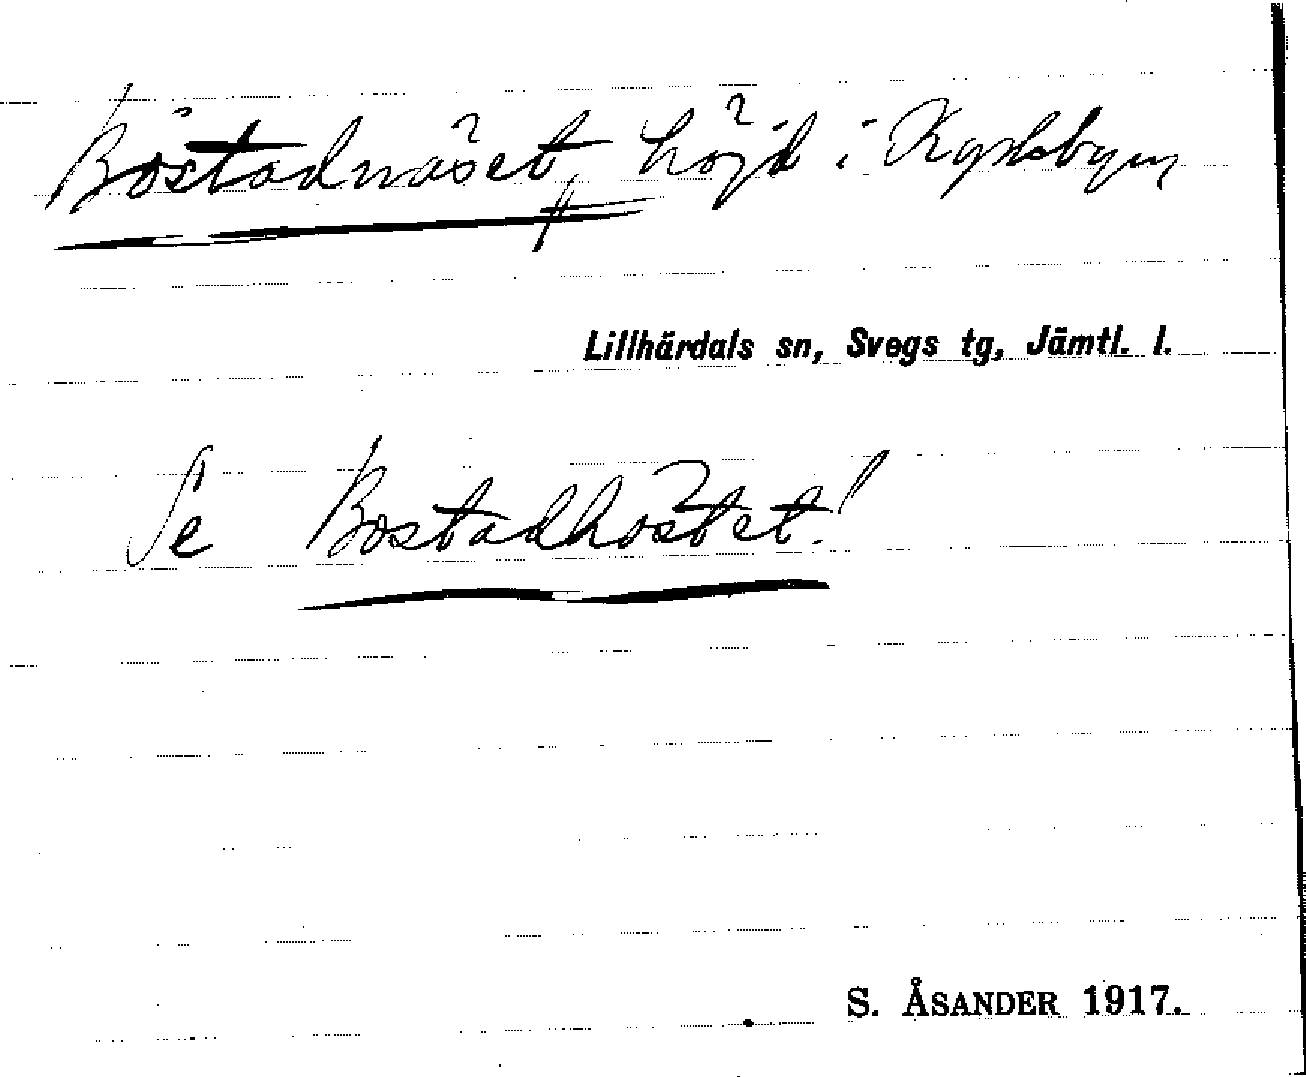 Böstadnäset, höjd i Kyrkbyn,
Lillhärdals sn, Svegs tg, Jämtl. l.
Se Böstadhöstet!
S. ÅSANDER 1917.